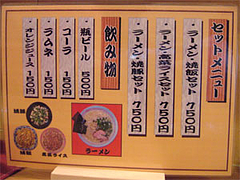 セットメニュー
ラーメン・焼飯セット 750円
ラーメン・高菜ライスセット 750円
ラーメン・焼豚セット 750円
飲み物
瓶ビール 500円
コーラ 150円
ラムネ 150円
オレンジジュース 150円
焼豚
焼飯
高菜ライス
ラーメン